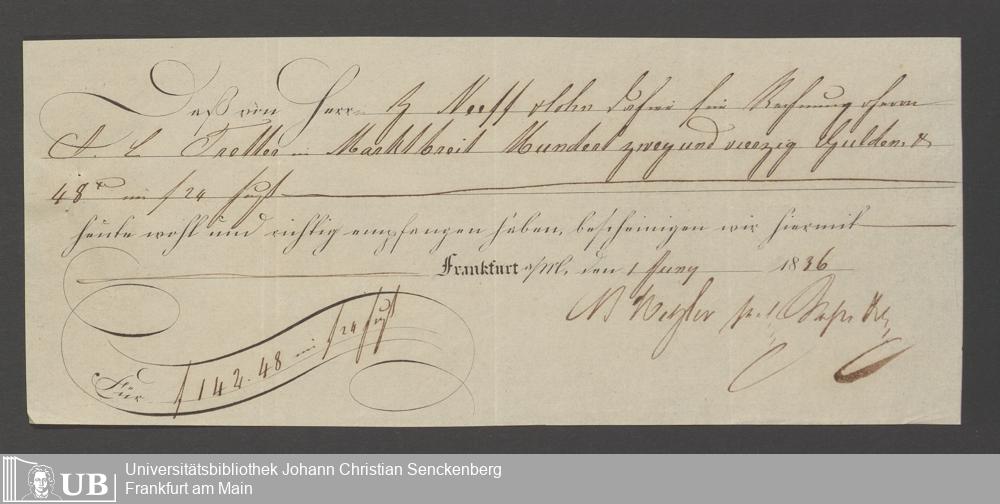 Daß von Herrn B Neeff & Sohn dahier für Rechnung Herrn
J. L. Tretter in Marktbreit Hundert zwey und vierzig Gulden &
48 x im f 24 Fuß
heute wohl und richtig empfangen haben, bescheinigen wir hiermit
Frankfurt a/M. den 1 Juny 1836
Für f 142.48 im f 24 Fuß
UB
Universitätsbibliothek Johann Christian Senckenberg
Frankfurt am Main